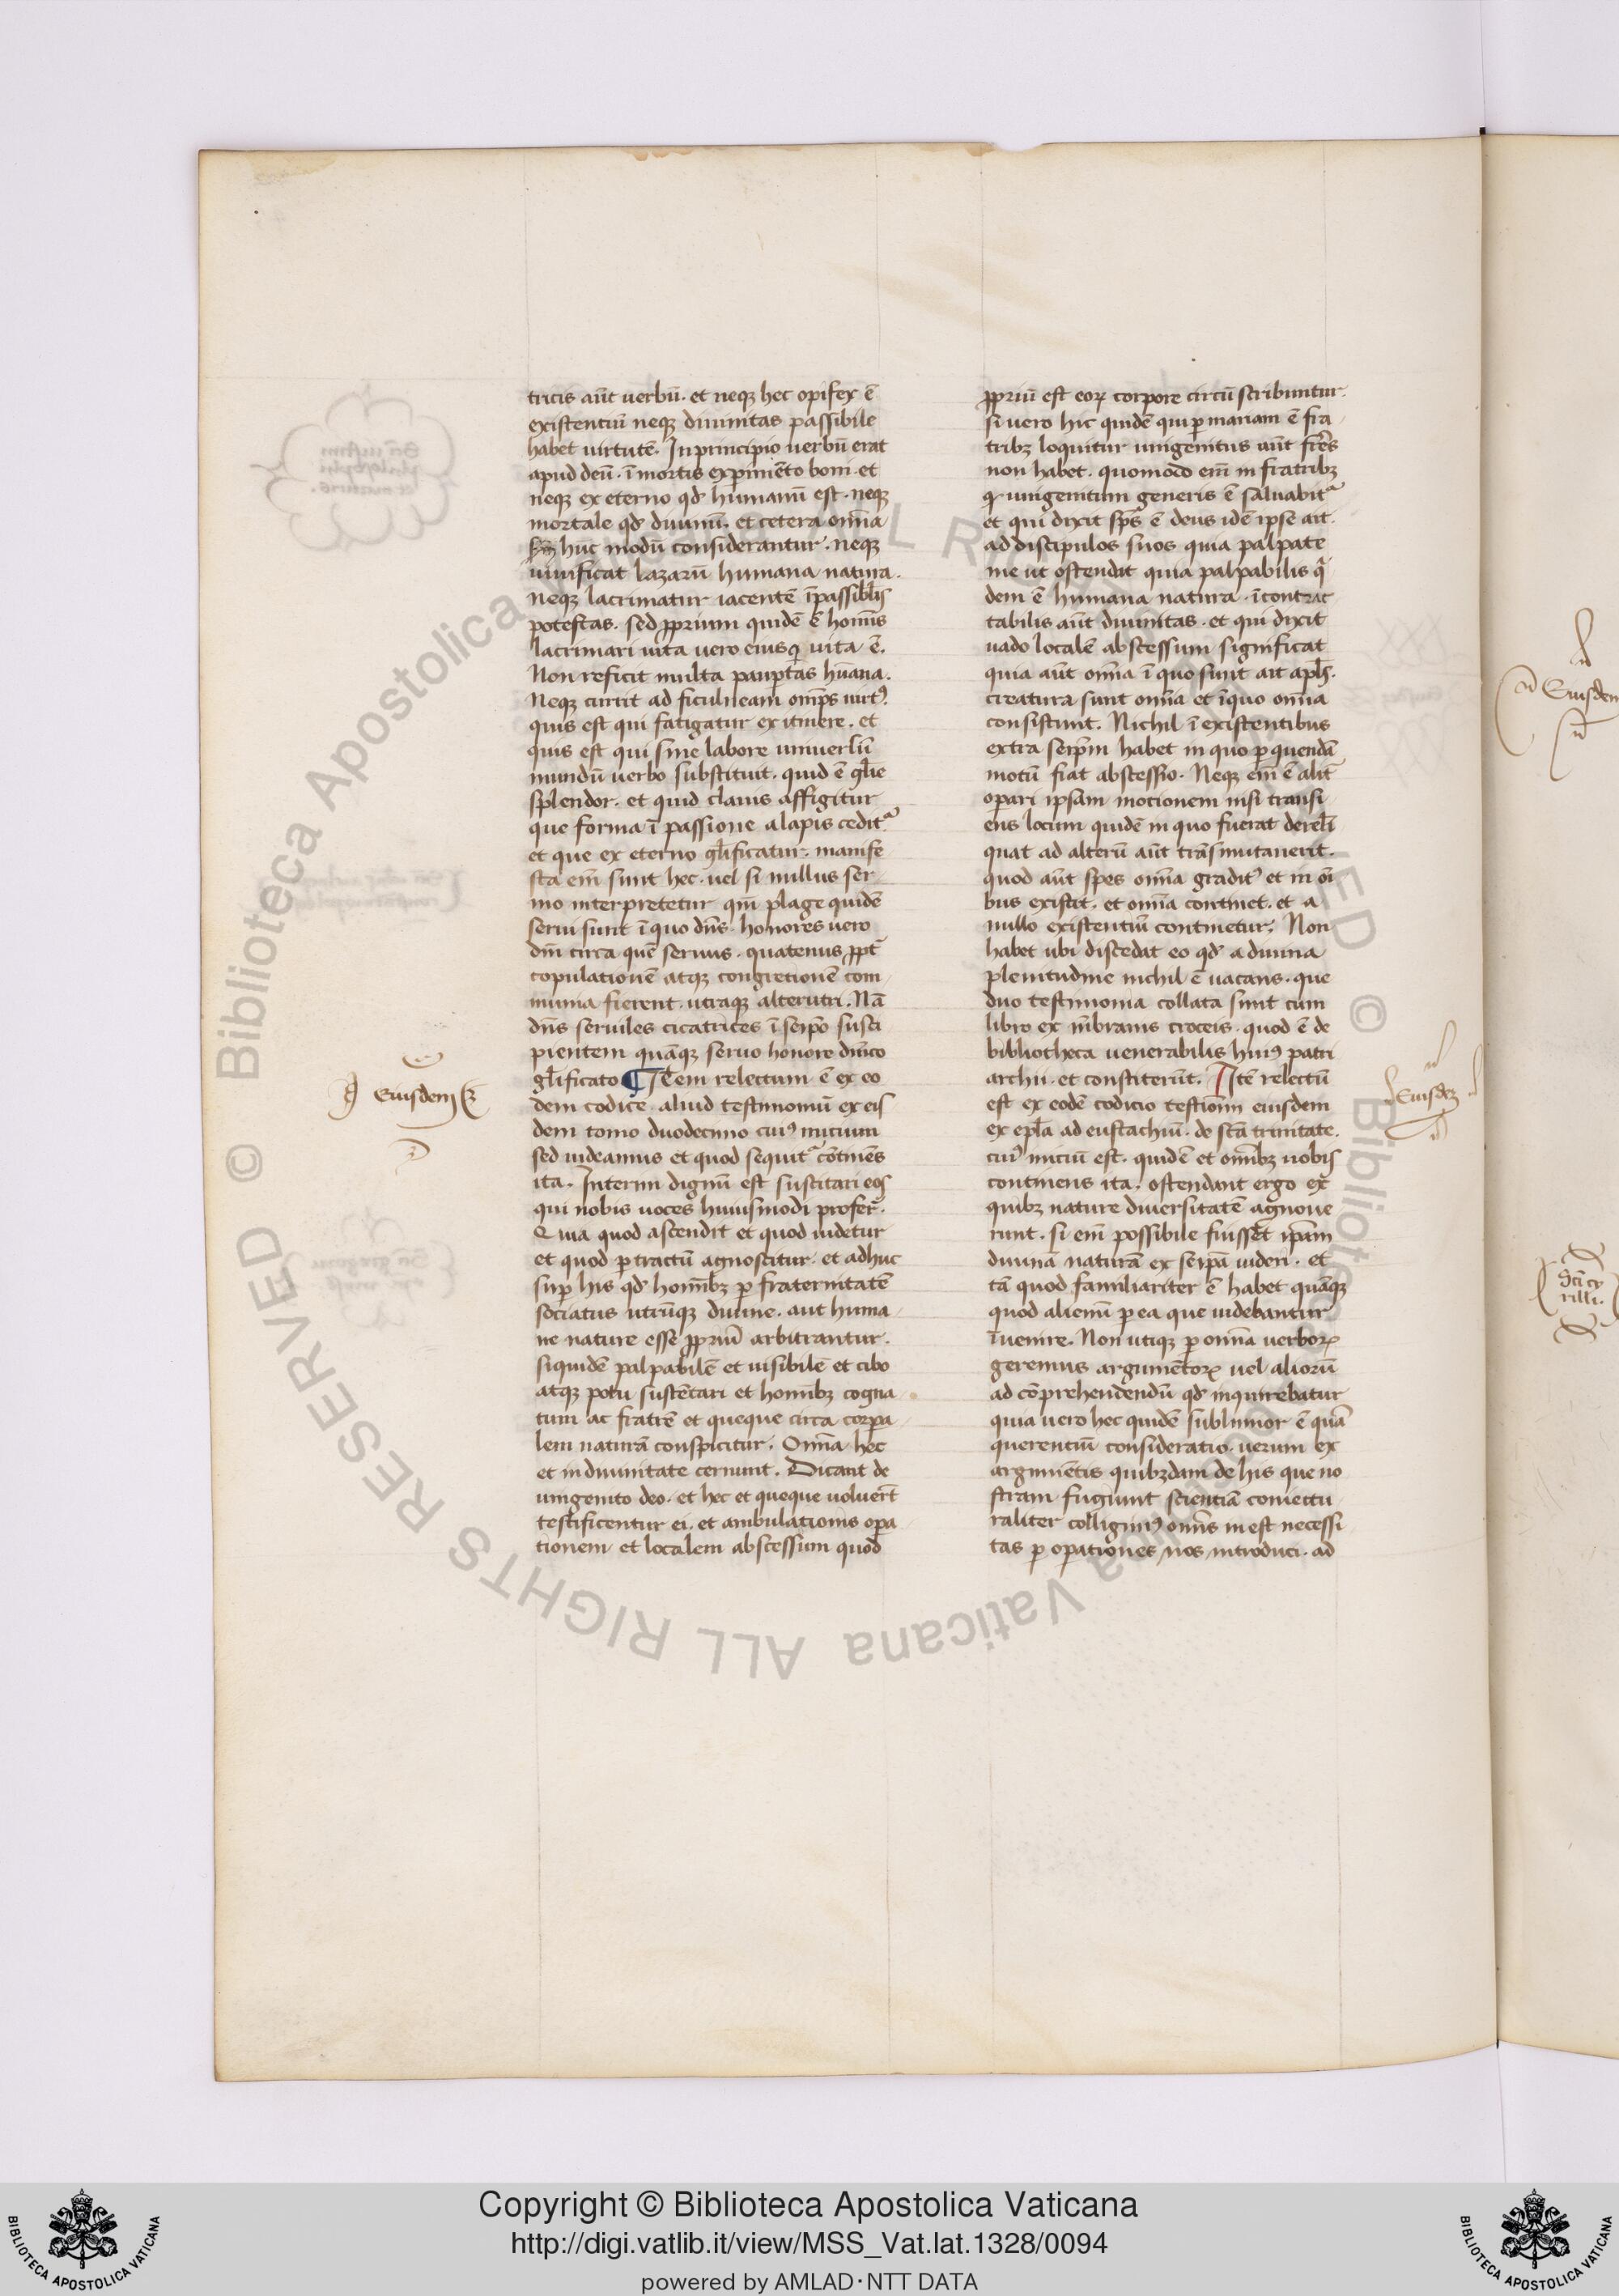 tricis aūt uerbū. et neqꝫ hec opifex ē
existentiū neqꝫ diuinitas passibile
habet uirtutē. In principio uerbū erat
apud deū. ī mortis exꝑimēto boni. et
neqꝫ ex eterno qđ humanū est. neqꝫ
mortale qđ diuinū. et cetera om̄ia
hūc modū considerantur. neqꝫ
uiuificat lazarū humana natura.
Neqꝫ lacrimatur iacentē īpassiblis
potestas. sed ꝓprium quidē ē homīs
lacrimari uita uero eius qͥ uita ē.
Non reficit multa pauꝑtas hūana.
Neqꝫ currit ad ficulneam om̄ps uirtꝰ.
quis est qui fatigatur ex itinere. et
quis est qui sine labore uniuersū
mundū uerbo substituit. quid ē gl̄ie
splendor. et quid clauis affigitur
que forma ī passione alapis cedit᷑
et que ex eterno gl̄ificatur. manife
sta em̄ sunt hec. uel si nullus ser
mo interpretetur qm̄ plage quidē
serui sunt ī quo dn̄s. honores uero
dn̄i circa quē seruus. quatenus ꝓpt̄
copulationē atqꝫ congretionē com
munia fierent. utraqꝫ alterutri. Nā
dn̄s seruiles cicatrices ī seip̄o susci
pientem quāqꝫ seruo honore dn̄ico
gl̄ificato ¶ Item relectum ē ex eo
dem codice aliud testimoniū ex eis
dem tomo duodecimo cuiꝰ inicium
sed uideamus et quod sequit᷑ cōtinēs
ita. Interim dignū est suscitari eos
qui nobis uoces huiusmodi profer̄.
Quia quod ascendit et quod uidetur
et quod ꝑ tractū agnoscitur. et adhuc
suꝑ his qđ homībꝫ ꝑ fraternitatē
sociatus utrūqꝫ diuine. aut huma
ne nature esse ꝓpriū arbitrantur.
siquidē palpabilē et uisibilē et cibo
atqꝫ potu sustētari et homībꝫ cogna
tum ac fratrē et queque circa corꝑa
lem naturā conspicitur. Om̄ia hec
et in diuinitate cernunt. Dicant de
unigenito deo. et hec et queque uoluer̄t
testificentur ei. et ambulationis oꝑa
tionem et localem abscessum quod
Eiusdem
ꝓpriū est eoꝝ corpore circū scribuntur.
si uero hic quidē qui ꝑ mariam ē fra
tribꝫ loquitur unigenitus aūt fr̄es
non habet. quomodo em̄ in fratribꝫ
unigenitum generis ē saluabit᷑
et qui dixit sp̄s ē deus idē ipse ait.
ad discipulos suos quia palpate
me ut ostendat quia palpabilis qͥ
dem ē humana natura. ī contrac
tabilis aūt diuinitas. et qui dixit
uado localē abscessum significat
quia aūt om̄ia ī quo sunt ait apl̄s.
creatura sunt om̄ia et ī quo om̄ia
consistunt. Nichil ī existentibus
extra seip̄m habet in quo ꝑ quendā
motū fiat abscessio. Neqꝫ em̄ ē alit̄
oꝑari ipsam mocionem nisi transi
ens locum quidē in quo fuerat dereli
quat ad alterū aūt trāsmutauerit.
quod aūt spes om̄ia gradit᷑ et in oī
bus existit. et om̄ia continet. et a
nullo existentiū continetur. Non
habet ubi discedat eo qđ a diuina
plenitudine nichil ē uacans. que
duo testimonia collata sunt cum
libro ex mēbranis croceis. quod ē de
bibliotheca uenerabilis huiꝰ patri
archii. et constiterūt. Itē relectū
est ex eodē codicio testioniu eiusdem
ex epl̄a ad eustachiū. de scā trinitate.
cuiꝰ iniciū est. quidē et omībꝫ uobis
continens ita. ostendant ergo ex
quibꝫ nature diuersitatē agnoue
runt. si em̄ possibile fuisset ip̄am
diuinā naturā ex seip̄a uideri. et
tā quod familiariter ē habet quāqꝫ
quod alienū ꝑ ea que uidebantur
īuenire. Non utiqꝫ ꝑ om̄ia uerboꝝ
geremus argumētoꝝ uel aliorū
ad cōprehendendū qđ inquirebatur
quia uero hec quidē sublimior ē quā
querentiū consideratio. uerum ex
argumētis quibꝫdam de his que no
stram fugiunt scientiā coniectu
raliter colligimꝰ om̄s in est necessi
tas ꝑ oꝑationes nos introduci. ad
Eiusdeꝫ
Eiusdem
Sci cy
rilli.
© Biblioteca Apostolica Vaticana ALL RIGHTS RESERVED
Copyright © Biblioteca Apostolica Vaticana
http://digi.vatlib.it/view/MSS_Vat.lat.1328/0094
powered by AMLAD·NTT DATA
BIBLIOTECA APOSTOLICA VATICANA
BIBLIOTECA APOSTOLICA VATICANA